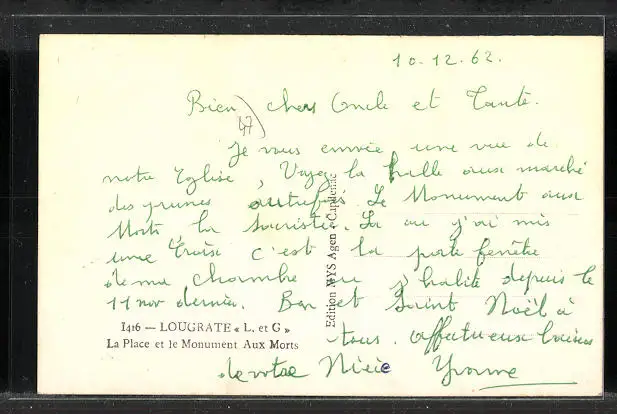 10.12.62.
Bien chers Oncle et Tante.
47
Je vous envoie une vue de
notre Eglise, Voyez la halle aux marché
des prunes autrefois. Le Monument aux
Morts, la sacristie. La ou j'ai mis
une Croix c'est la porte fenêtre
de ma chambre ou j'habite depuis le
11 nov dernier. Bon et Saint Noël à
tous. affectueux baisers
de votre Nièce Yvonne
1416 — LOUGRATE « L. et G »
La Place et le Monument Aux Morts
Edition WYS Agen - Capdenac